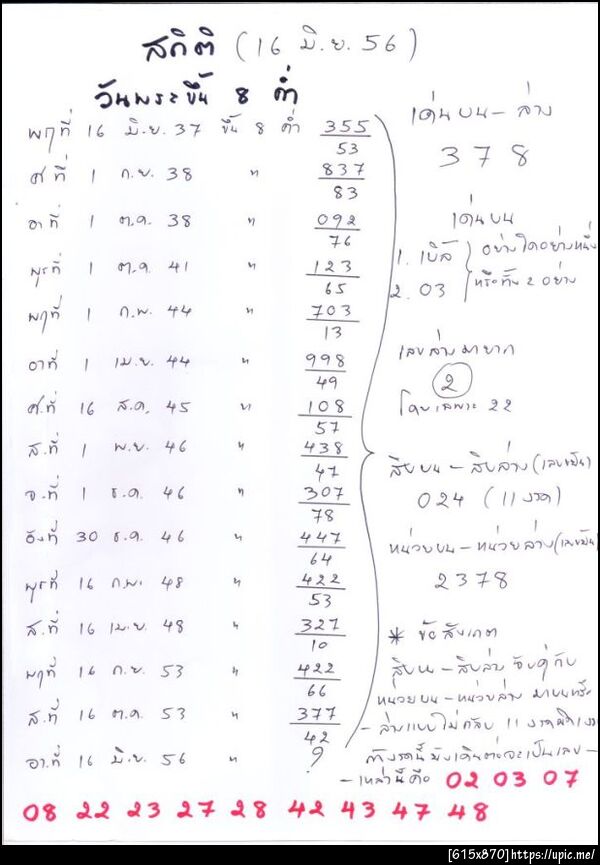 สถิติ (16 มิ.ย. 56)
วันพระขึ้น 8 ค่ำ
พฤที่ 16 มิ.ย. 37 ขึ้น 8 ค่ำ 355
53
ศ ที่ 1 ก.ย. 38 " 837
83
อาที่ 1 ต.ค. 38 " 092
76
พุธที่ 1 ต.ค. 41 " 123
65
พฤที่ 1 ก.พ. 44 " 703
13
อาที่ 1 เม.ย. 44 " 998
49
ศ.ที่ 16 ส.ค. 45 " 108
57
ส.ที่ 1 พ.ย. 46 " 438
47
จ.ที่ 1 ธ.ค. 46 " 307
78
อังที่ 30 ธ.ค. 46 " 447
64
พุธที่ 16 ก.พ. 48 " 422
53
ส.ที่ 16 เม.ย. 48 " 327
10
พฤที่ 16 ก.ย. 53 " 422
66
ส.ที่ 16 ต.ค. 53 " 377
42
อา.ที่ 16 มิ.ย. 56 " ?
เด่นบน - ล่าง
3 7 8
เด่นบน
1. เบิ้ล
2. 03
อย่างใดอย่างหนึ่ง
หรือทั้ง 2 อย่าง
เลขล่างมายาก
2
โดยเฉพาะ 22
สิบบน - สิบล่าง (เลขยืน)
024 (11 งวด)
หน่วยบน - หน่วยล่าง (เลขยืน)
2378
* ข้อสังเกต
สิบบน - สิบล่าง จับคู่กับ
หน่วยบน - หน่วยล่าง มาบนหรือ
- ล่างแบบไม่กลับ 11 งวด
ถ้างวดนี้ยังเดินต่อจะเป็นเลข -
- เหล่านี้คือ 02 03 07
08 22 23 27 28 42 43 47 48
[615x870]https://upic.me/